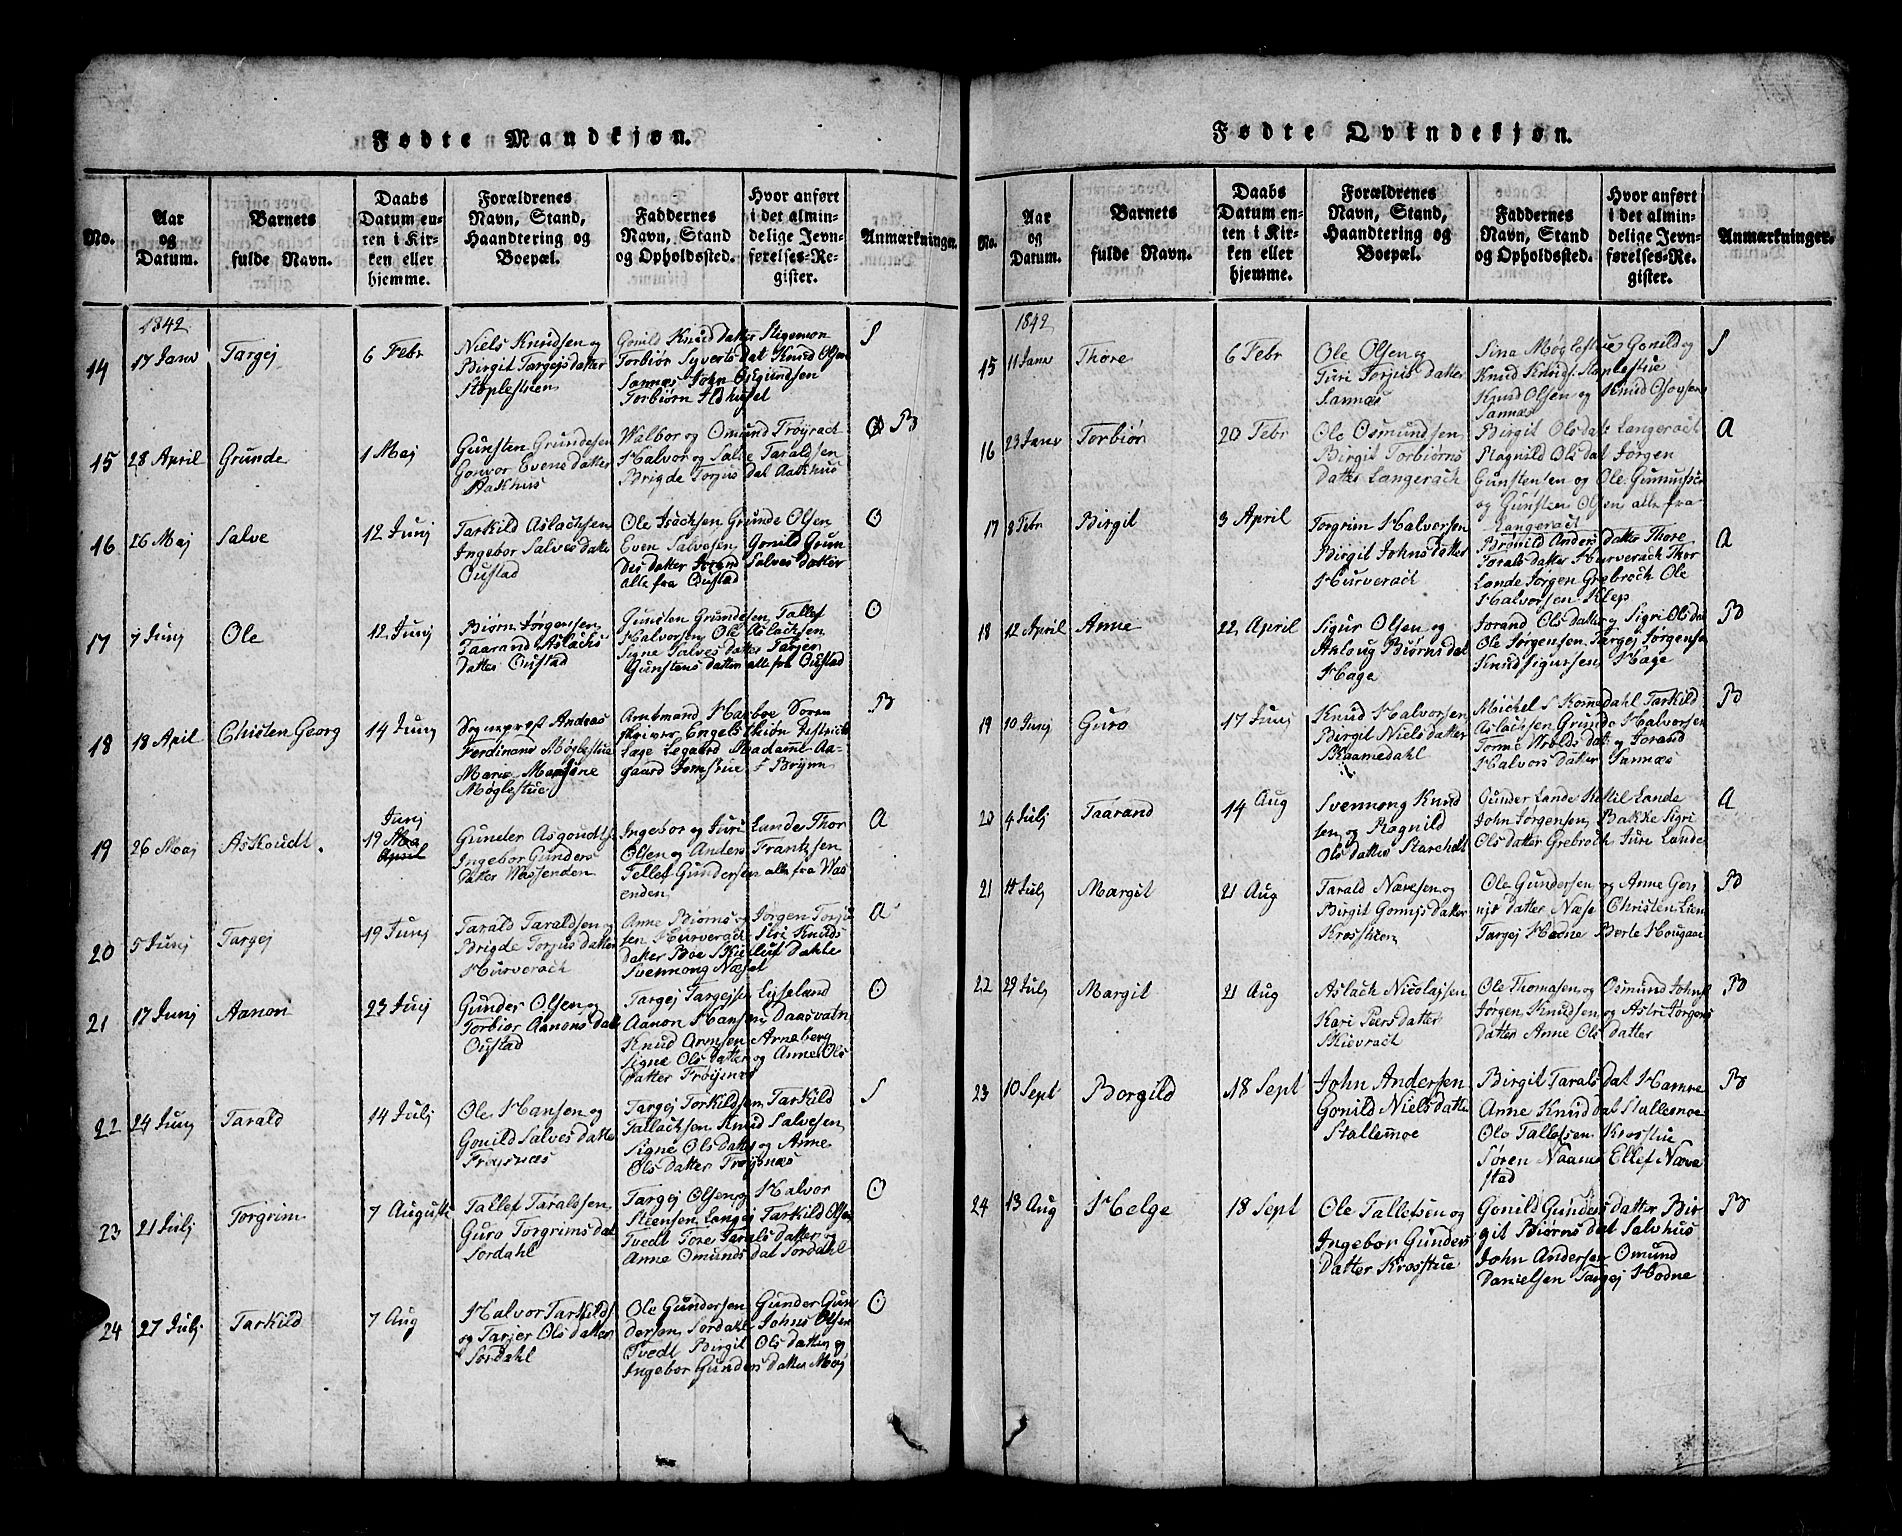 Fødte Mandkjøn.
No.
Aar og Datum.
Barnets fulde Navn.
Daabs Datum enten i Kirken eller hjemme.
Forældrenes Navn, Stand, Haandtering og Boepæl.
Faddernes Navn, Stand og Opholdssted.
Hvor anført i det almindelige Jevnførelses-Register.
Anmærkninger.
1842
14 17 Janv Targej 6 Febr
Niels Knudsen og
Birgit Targejsdatter
Støplestuen
Gonild Knuddatter Stigemon
Torbiør Syvertsdat Knud Olsen
Sannæs John Osmundsen
Torbiørn Ildhuset
S
15 28 April Grunde 1 Maj
Gunsten Grundesen
Gonvor Evensdatter
Aakhus
Walbor og Omund Frøyrach
Halvor og Salve Taraldsen
Brigde Torjusdat Aakhus
O B
16 26 Maj Salve 12 Junj
Tarkild Aslachsen
Ingebor Salvesdatte
Oustad
Ole Isachsen Grunde Olsen
Even Salvesen Gonild Grun
desdatter Jorand Salvesdatter
alle fra Oustad
O
17 7 Junj Ole 12 Junj
Biørn Jørgensen
Taarand Aslachs
datter Oustad
Gunsten Grundesen Tallef
Halvorsen Ole Aslachsen
Signe Salvesdatter Tarjer
Gunstensdatter alle fra Oustad
O
18 18 April Chisten Georg 14 Junj
Sognepræst Andreas
Ferdinand Møglestue
Marie Madsine
Møglestue
Amtmand Harboe Soren
skriver Engelsthiøn Distrikts
Læge Legaard Madame Aa
gaard Jomfrue F Bøymn
B
19 26 Maj Askoudt.
Junj
19 Maj
April
Gunder Asgoudts
Ingebor Gunders
datter Wassenden
Ingebor og Juri Lande Thor
Olsen og Anders Frantzsen
Tellef Gundersen alle fra Was
enden
A
20 5 Junj Targej 19 Junj
Tarald Taraldsen og
Brigde Torjusdatter
Hurverach
Anne Biørns og Jørgen Torju
sen Hurverach Siri Knuds
datter Boe Skiellut Dahle
Svennong Næset
A
21 17 Junj Aanon 23 Juj
Gunder Olsen og
Torbiør Aanensdatt
Oustad
Targej Targejsen Lisseland
Aanon Hansen Daasvatn
Knud Arensen Arneberg
Signe Olsdatter og Anne Ols
datter Frøysnæs
O
22 24 Junj Tarald 14 Julj
Ole Hansen og
Gonild Salvesdatter
Frøysnæs
Targej Torkildsen Tarkild
Tallachsen Knud Salvesen
Signe Olsdatter og Anne
Olsdatter Frøysnæs
S
23 21 Julj Torgrim 7 August
Tallef Taraldsen,
Guro Torgrimsdat
Sordahl
Targej Olsen og Halvor
Steensen Langej Tarkild Olsen
Tvedt Tore Taralsdatter og
Anne Omundsdat Sordahl
O
24 27 Julj Tarkild 7 Aug
Halvor Tarkilds
og Tarjer Olsdatter
Sordahl
Ole Gundersen Gunder Gun
dersen Sordahl Johns Olsen
Tvedt Birgit Olsdatter og
Ingebor Gundersdatter Moj
O
Fødte Qvindekjøn.
No.
Aar og Datum.
Barnets fulde Navn.
Daabs Datum enten i Kirken eller hjemme.
Forældrenes Navn, Stand, Haandtering og Boepæl.
Faddernes Navn, Stand og Opholdssted.
Hvor anført i det almindelige Jevnførelses-Register.
Anmærkninger.
1842
15 11 Janv Thore 6 Febr
Ole Olsen og
Turi Torjusdatter
Sannæs
Sina Møglestue Gonild og
Knud Knuds. Støplestue
Knud Olsen og Knud Osovsen
Sannæs
S
16 23 Janv Torbiør 20 Febr
Ole Osmundsen
Birgit Torbiørns
datter Langerach
Birgit Olsdat Langerach
Ragnild Olsdat Jørgen
Gunstensen og Ole Gunnufsen
og Gunsten Olsen alle fra
Langerach
A
17 8 Febr Birgit 3 April
Torgrim Halvorsen
Birgit Johnsdatter
Hurverach
Brønild Andersdatter Thore
Toralsdatter Hurverach Thor
Lande Jørgen Grebroch Ole
Halvorsen Klep
A
18 12 April Anne 22 April
Sigur Olsen og
Asloug Biørnsdat
Hage
Jorand Olsdatter Sigri Olsdat
Ole Jørgensen Targej Jørgensen
Knud Sigursen Hage
B
19 10 Junj Guro 17 Junj
Knud Halvorsen
Birgit Nielsdatter
Kaamedahl
Michel S Komedahl Tarkild
Aslachsen Grunde Halvorsen
Tormo Wroldsdat Jorand
Halvorsdatter Sannæs
B
20 4 Julj Taarand 14 Aug
Svennong Knud
sen og Ragnild
Olsdatter Stareholt
Gunder Lande Ketil Lande
John Jørgensen Bakke Sigri
Olsdatter Grebroch Juri Lande
A
21 11 Julj Margit 21 Aug
Tarald Næresen og
Birgit Gonnjsdatter
Krosstuen
Ole Gundersen og Anne Gon
njsdatter Næse Christen Lien
Targej Hodne Berte Hougaa
B
22 29 Julj Margit 21 Aug
Aslach Nicolajsen
Kari Peersdatter
Skievrach
Ole Thomasen og Osmund Johns
Jørgen Knudsen og Astri Jørgens
datter Anne Olsdatter
B
23 10 Sept Borgild 18 Sept
John Andersen
Gonild Nielsdatte
Stallemoe
Birgit Taralsdat Hamre
Anne Knuddat Stallemoe
Ole Tallefsen Krostue
Søren Naames Ellef Næve
stad
B
24 13 Aug Helge 18 Sept
Ole Tallefsen og
Ingebor Gunders
datter Krosstue
Gonild Gundersdatter Bir
git Biørnsdat Salvhus
John Andersen Omund
Danielsen Targej Hodne
B